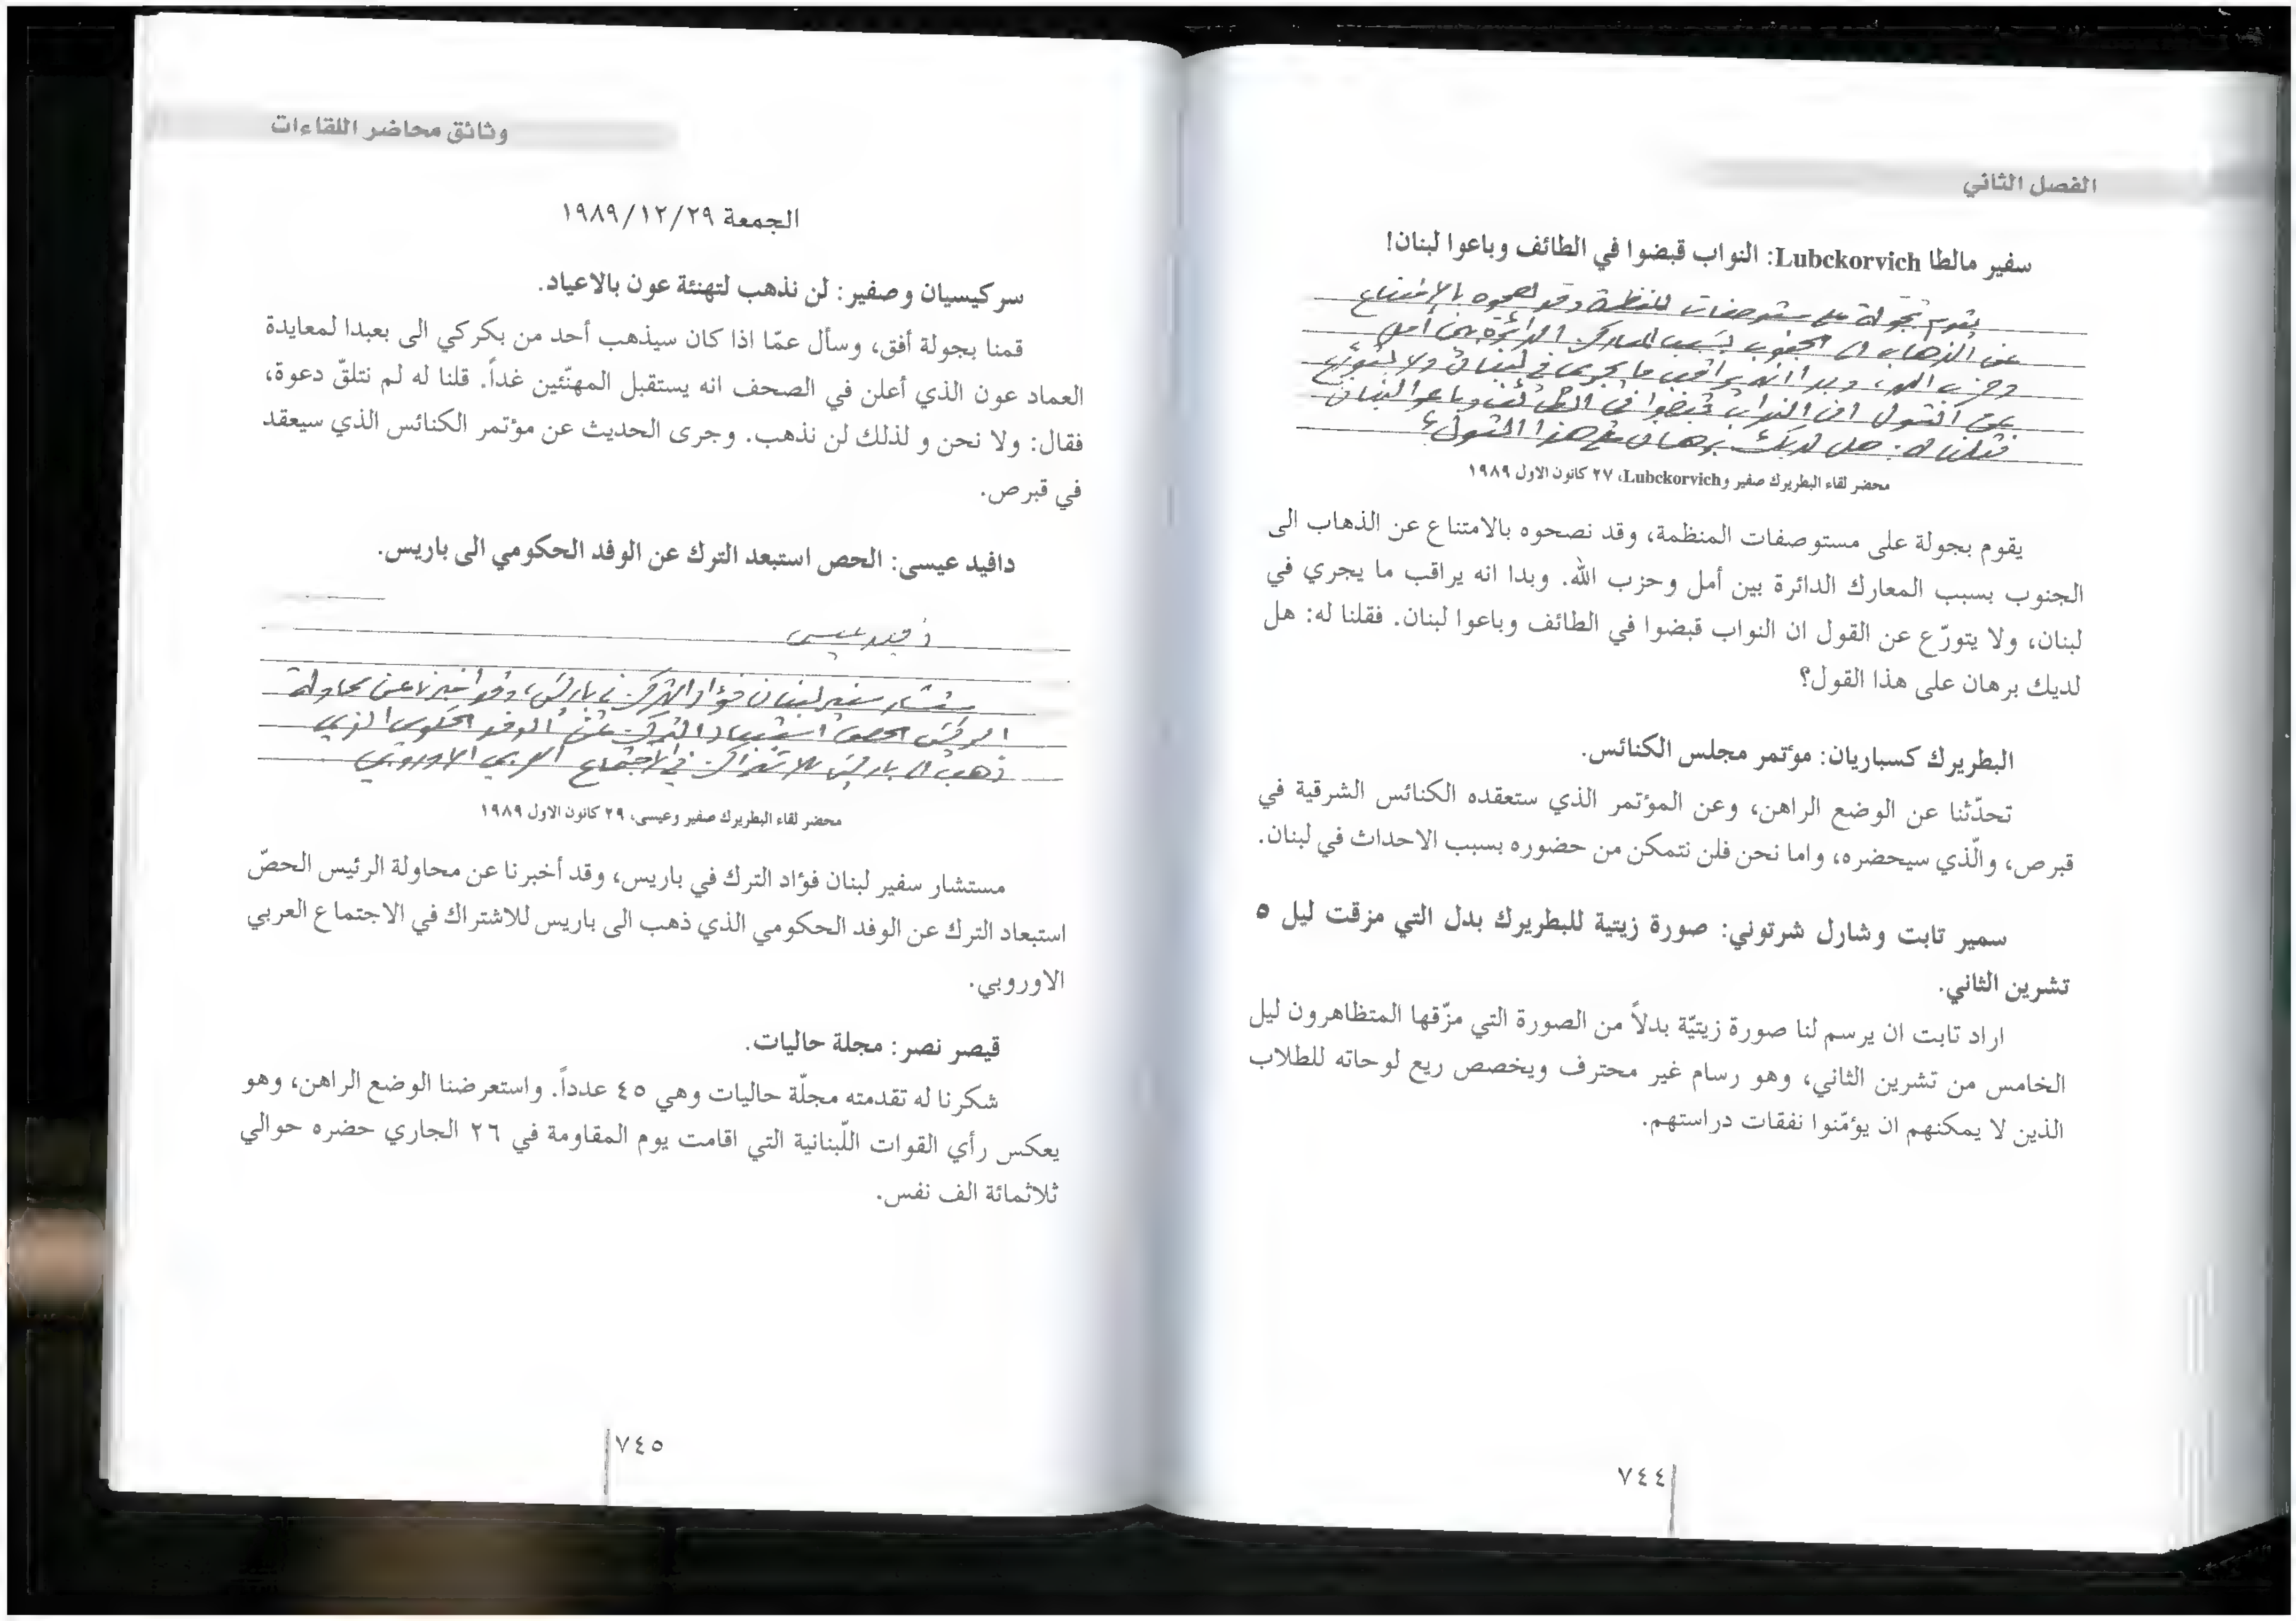 الفصل الثاني
سفير مالطا Lubckorvich: النواب قبضوا في الطائف وباعوا لبنان!
يقوم بجولة على مستوصفات المنظمة وقد نصحوه بالامتناع
عن الذهاب الى الجنوب بسبب المعارك الدائرة بين أمل
وحزب الله، وبدا انه يراقب ما يجري في لبنان ولا يتورّع
عن القول ان النواب قبضوا في الطائف وباعوا لبنان
فقلنا له: هل لديك برهان على هذا القول؟
محضر لقاء البطريرك صفير وLubckorvich، ٢٧ كانون الاول ١٩٨٩
يقوم بجولة على مستوصفات المنظمة، وقد نصحوه بالامتناع عن الذهاب الى
الجنوب بسبب المعارك الدائرة بين أمل وحزب الله. وبدا انه يراقب ما يجري في
لبنان، ولا يتورّع عن القول ان النواب قبضوا في الطائف وباعوا لبنان. فقلنا له: هل
لديك برهان على هذا القول؟
البطريرك كسباريان: مؤتمر مجلس الكنائس.
تحدّثنا عن الوضع الراهن، وعن المؤتمر الذي ستعقده الكنائس الشرقية في
قبرص، والّذي سيحضره، واما نحن فلن نتمكن من حضوره بسبب الاحداث في لبنان.
سمير تابت وشارل شرتوني: صورة زيتية للبطريرك بدل التي مزقت ليل ٥
تشرين الثاني.
اراد تابت ان يرسم لنا صورة زيتيّة بدلاً من الصورة التي مزّقها المتظاهرون ليل
الخامس من تشرين الثاني، وهو رسام غير محترف ويخصص ريع لوحاته للطلاب
الذين لا يمكنهم ان يؤمّنوا نفقات دراستهم.
٧٤٤
وثائق محاضر اللقاءات
الجمعة ١٩٨٩/١٢/٢٩
سركيسيان وصفير: لن نذهب لتهنئة عون بالاعياد.
قمنا بجولة أفق، وسأل عمّا اذا كان سيذهب أحد من بكركي الى بعبدا لمعايدة
العماد عون الذي أعلن في الصحف انه يستقبل المهنّئين غداً. قلنا له لم نتلقّ دعوة،
فقال: ولا نحن و لذلك لن نذهب. وجرى الحديث عن مؤتمر الكنائس الذي سيعقد
في قبرص.
دافيد عيسى: الحص استبعد الترك عن الوفد الحكومي الى باريس.
دفيد عيسى
مستشار سفير لبنان فؤاد الترك في باريس، وقد أخبرنا عن محاولة
الرئيس الحص استبعاد الترك عن الوفد الحكومي الذي
ذهب الى باريس للاشتراك في الاجتماع العربي الاوروبي.
محضر لقاء البطريرك صفير وعيسى، ٢٩ كانون الاول ١٩٨٩
مستشار سفير لبنان فؤاد الترك في باريس، وقد أخبرنا عن محاولة الرئيس الحصّ
استبعاد الترك عن الوفد الحكومي الذي ذهب الى باريس للاشتراك في الاجتماع العربي
الاوروبي.
قيصر نصر: مجلة حاليات.
شكرنا له تقدمته مجلّة حاليات وهي ٤٥ عدداً. واستعرضنا الوضع الراهن، وهو
يعكس رأي القوات اللّبنانية التي اقامت يوم المقاومة في ٢٦ الجاري حضره حوالي
ثلاثمائة الف نفس.
٧٤٥